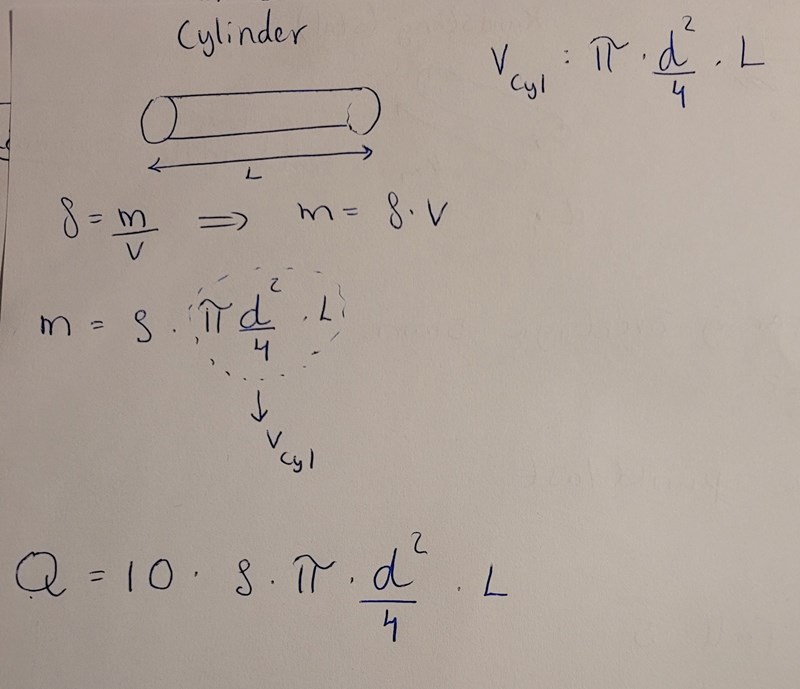 Cylinder
V_cyl : π · d²/4 · L
L
ρ = m/V ⟹ m = ρ · V
m = ρ · π d²/4 · L
↓
V_cyl
Q = 10 · ρ · π · d²/4 · L